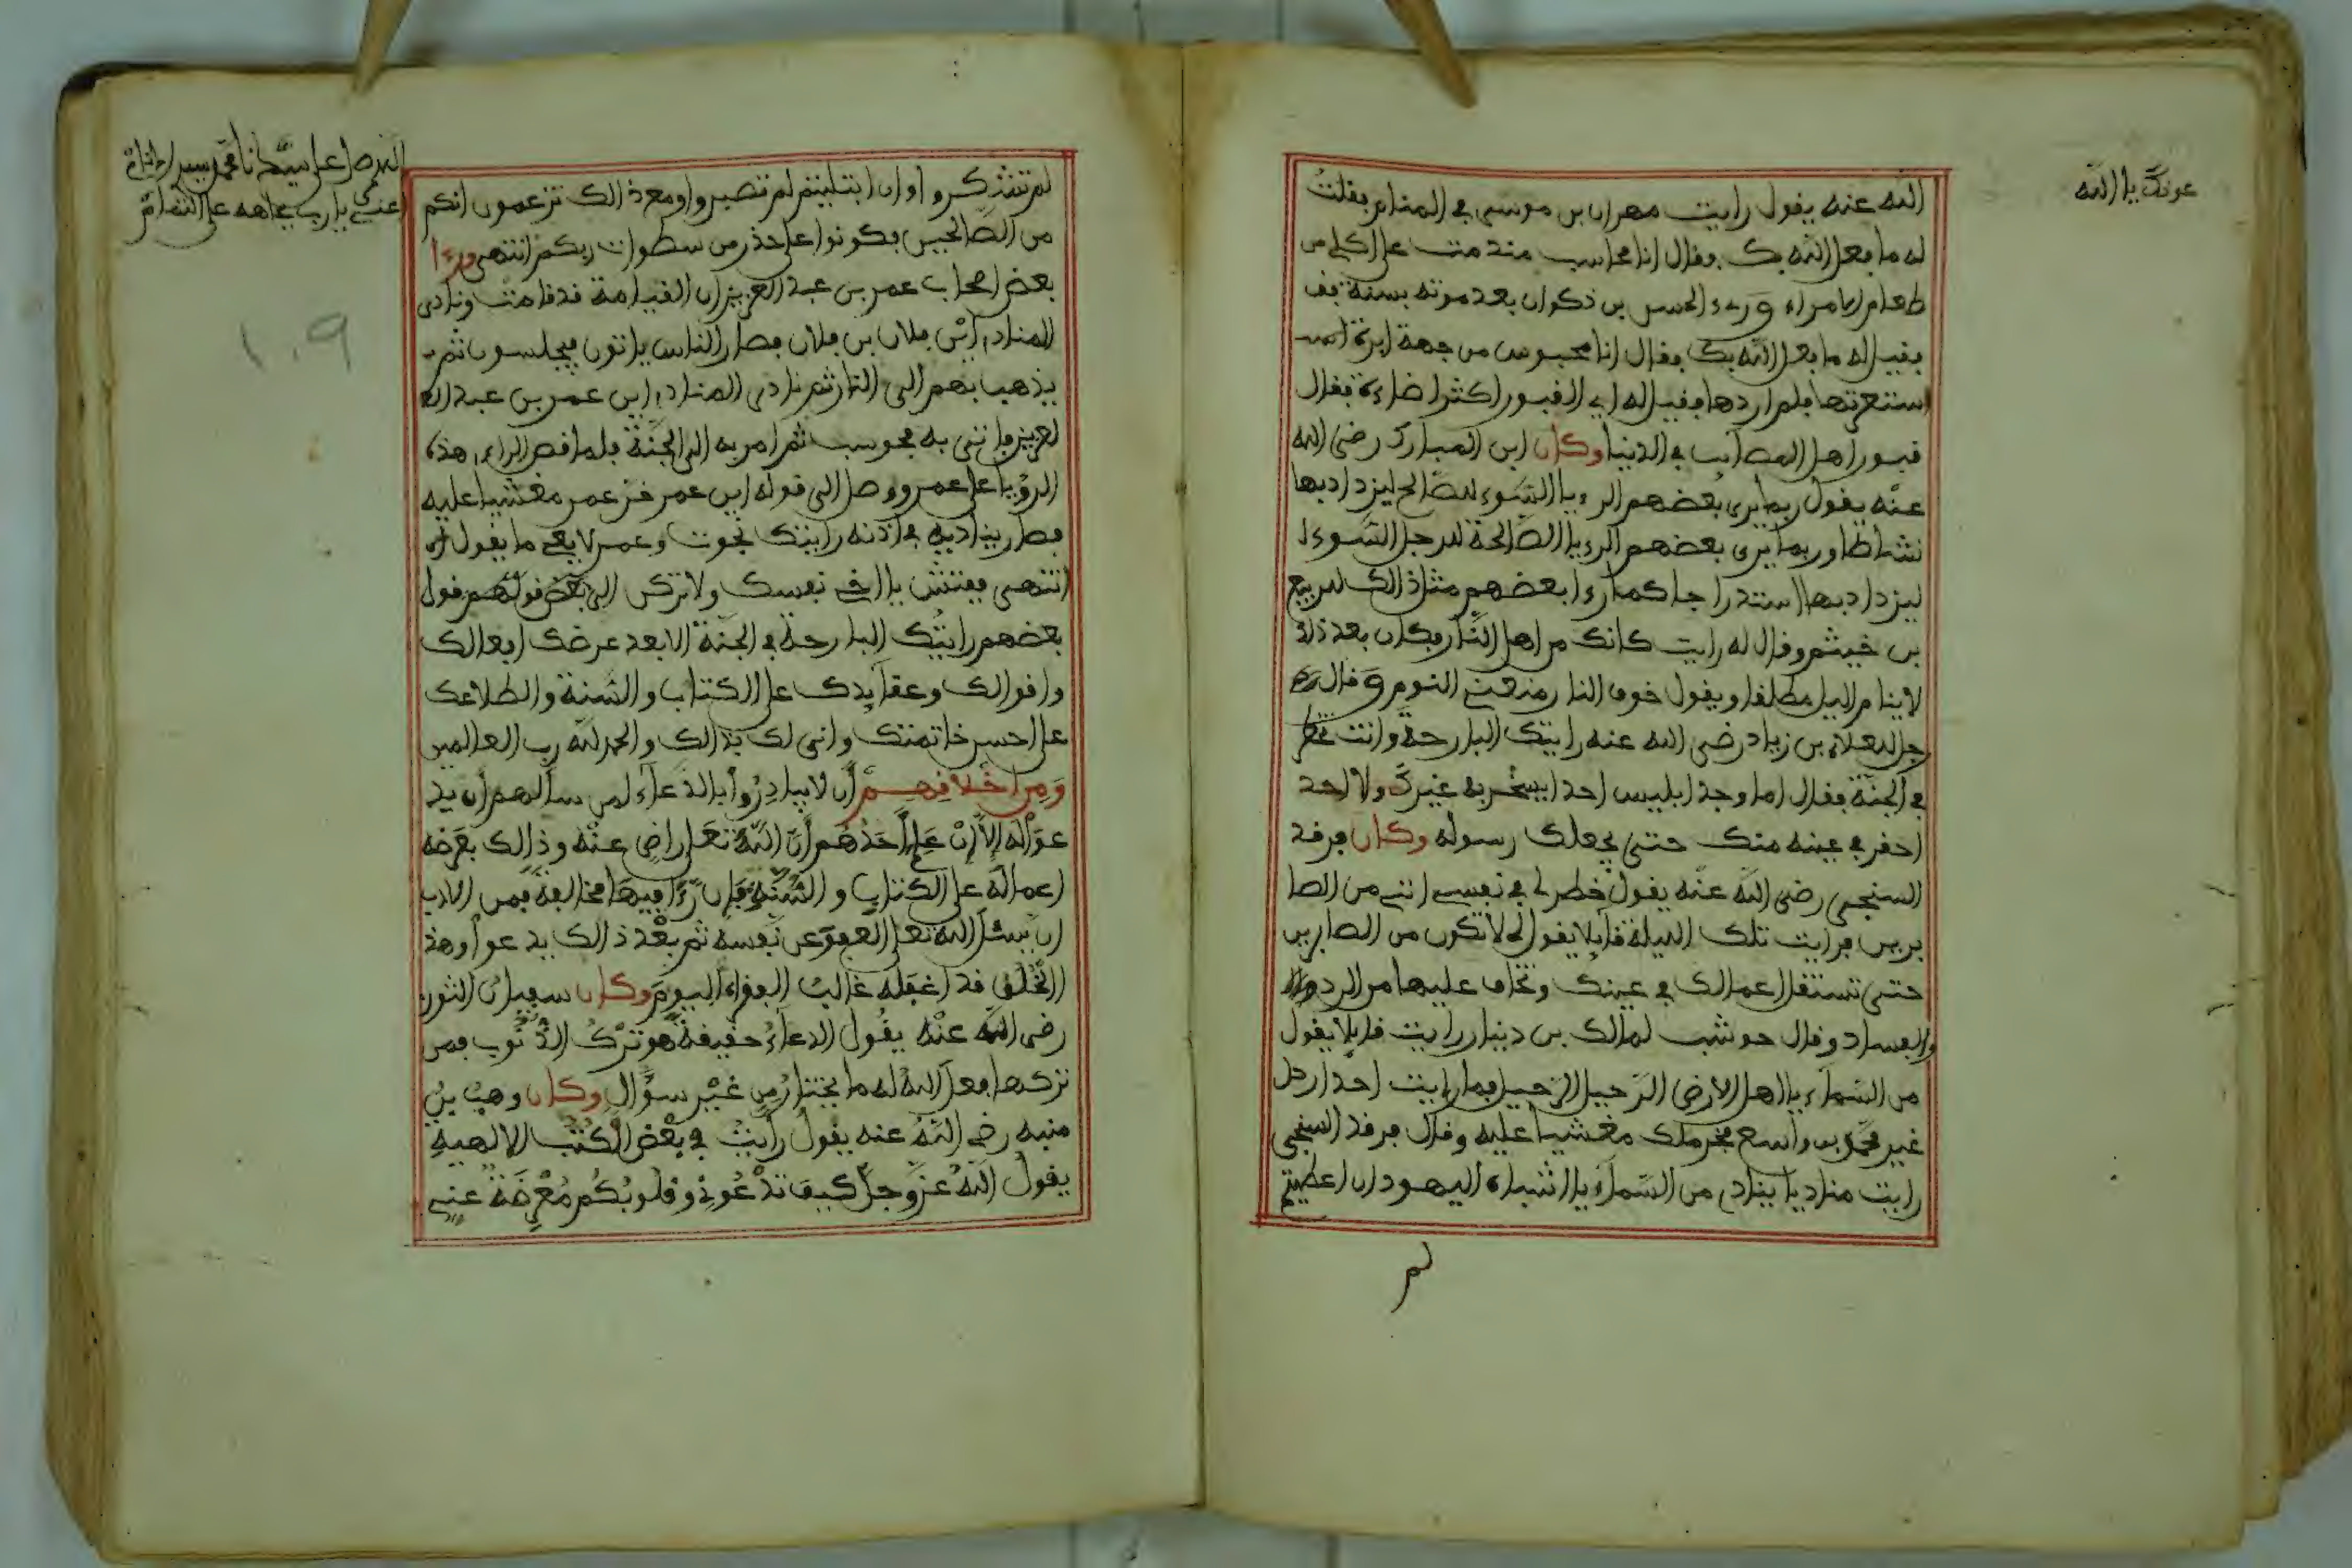 عونك يا الله
الله عنه يقول رايت مهران بن موسى في المنام فقلت
له ما فعل الله بك وقال انا محاسب منذ مت على اكلي من
طعام الامراء وريء الحسن بن ذكوان بعد موته بسنة فق
فقيل له ما فعل الله بك فقال انا محبوس من جهة ابرة
استعرتها فلم اردها فقيل له اي القبور اكثر اضاءة فقال
قبور اهل المصائب في الدنيا وكان ابن المبارك رضى الله
عنه يقول ربما يرى بعضهم الرءيا السوء للصالح ليزداد بها
نشاطا وربما يرى بعضهم الرءيا الصالحة للرجل السوء ا
ليزداد بها استدراجا كما رءا بعضهم مثل ذالك للربيع
بن خيثم وقال له رايت كانك من اهل النار فكان بعد ذلك
لا ينام اليل مطلقا ويقول خوف النار منعني النوم وقال ر
جل للعلاء بن زياد رضى الله عنه رايتك البارحة وانت تخطر
في الجنة فقال اما وجد ابليس احدا يسخر به غيرك ولا احد
احقر في عينه منك حتى يجعلك رسوله وكان فرقد
السنجي رضى الله عنه يقول خطر لي في نفسي انني من الصا
برين فرايت تلك الليلة قائلا يقول لي لا تكون من الصابرين
حتى تستقل اعمالك في عينك وتخاف عليها من الرد
والفساد وقال حوشب لمالك بن دينار رايت قائلا يقول
من السماء يا اهل الارض الرحيل الرحيل فما رايت احدا رحل
غير محمد بن واسع فخر ملك مغشيا عليه وقال فرقد السنجي
رايت مناديا ينادي من السماء يا اشباه اليهود ان اعطيتم
لم
اللهم صل على سيدنا محمد
اعني يا رب بجاهه على
١٠٩
لم تشكروا وان ابتليتم لم تصبروا ومع ذالك تزعمون انكم
من الصالحين فكونوا على حذر من سطوات ربكم انتهى ورءا
بعض اصحاب عمر بن عبد العزيز ان القيامة قد قامت ونادى
المنادي اين فلان بن فلان فصار الناس ياتون فيجلسون ثم
يذهب بهم الى النار ثم نادى المنادي اين عمر بن عبد الع
لعزيز فاتى به فحوسب ثم امر به الى الجنة فلما قص الراءي هذه
الرؤيا على عمر ووصل الى قوله اين عمر خر عمر مغشيا عليه
فصار يناديه في اذنه رايتك نجوت وعمر لا يعي ما يقول له
انتهى ففتش يا اخي نفسك ولا تركن الى بعض قولهم قول
بعضهم رايتك البارحة في الجنة الا بعد عرضك افعالك
واقوالك وعقائدك على الكتاب والسنة واطلاعك
على احسن خاتمتك وانى لك بذالك والحمد لله رب العالمين
ومن اخلاقهم ان لا يبادروا بالدعاء لمن سالهم ان يد
عوا له الا ان علم احدهم ان الله تعلى راض عنه وذالك بعرضه
اعماله على الكتاب والسنة فان رءا فيها مخالفة فمن الادب
ان يسئل الله تعلى العفو عن نفسه ثم بعد ذالك يدعوا وهذ
الخلق قد اغفله غالب الفقراء اليوم وكان سفيان الثور
رضى الله عنه يقول الدعاء حقيقة هو ترك الذنوب فمن
تركها فعل الله له ما يختار من غير سؤال وكان وهب بن
منبه رضى الله عنه يقول رايت في بعض الكتب الالهية
يقول الله عز وجل كيف تدعوني وقلوبكم معرضة عني